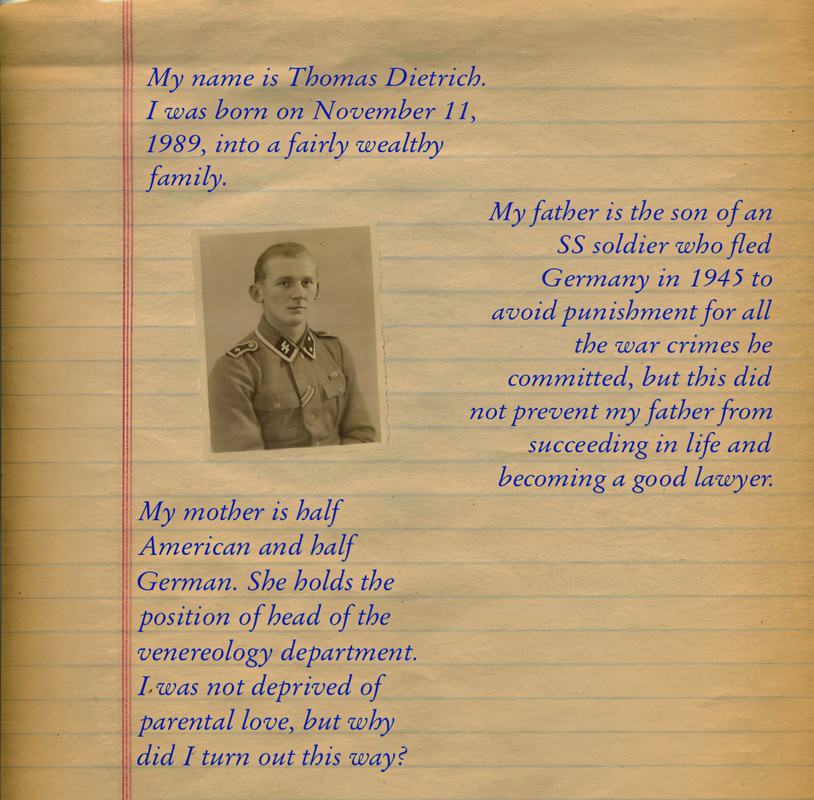 My name is Thomas Dietrich.
I was born on November 11,
1989, into a fairly wealthy
family.
My father is the son of an
SS soldier who fled
Germany in 1945 to
avoid punishment for all
the war crimes he
committed, but this did
not prevent my father from
succeeding in life and
becoming a good lawyer.
My mother is half
American and half
German. She holds the
position of head of the
venereology department.
I was not deprived of
parental love, but why
did I turn out this way?